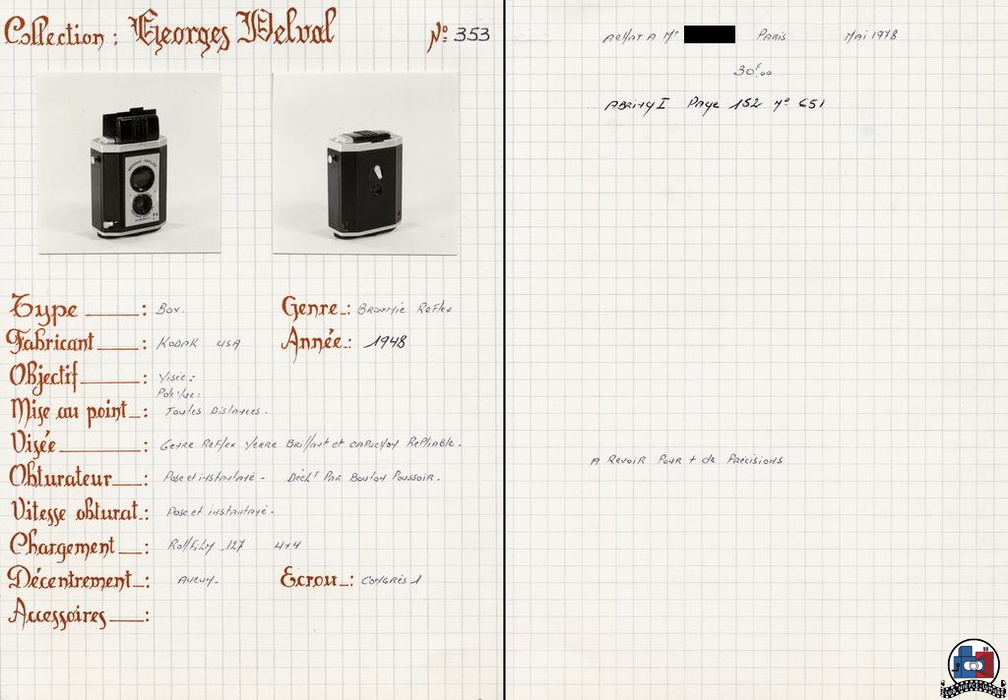 Collection : Georges Delval Nº 353
Type : Box.
Genre : Brownie Reflex
Fabricant : KODAK USA
Année : 1948
Objectif : Visée :
Pde Vue :
Mise au point : Toutes Distances.
Visée : Genre Reflex Verre Brillant et capuchon Repliable.
Obturateur : Pose et instantané - Déclt Par Bouton Poussoir.
Vitesse obturat. : Pose et instantané.
Chargement : Rollfilm 127 4x4
Décentrement : Aucun.
Ecrou : Congrès 1
Accessoires :
Achat A Mr PARIS Mai 1978
30F,00
ABRING I Page 152 nº 651
A Revoir Pour + de Précisions